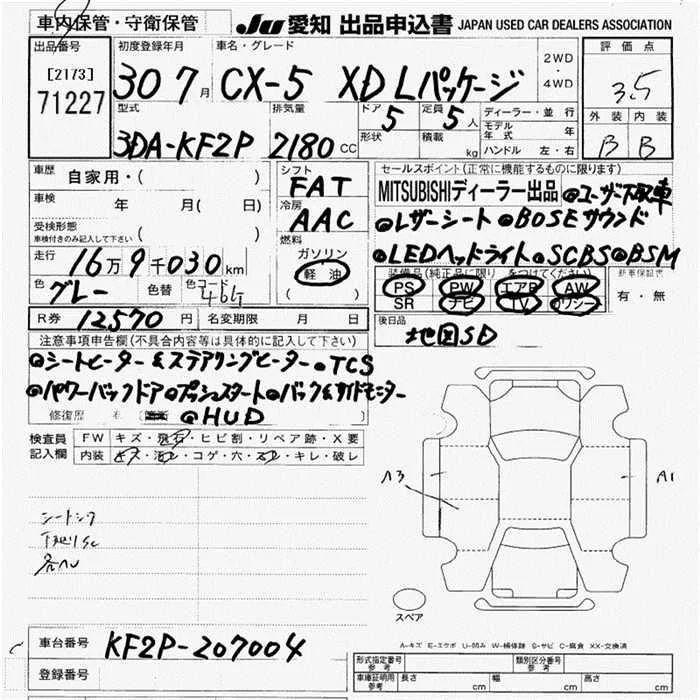 車内保管・守衛保管 JU 愛知 出品申込書 JAPAN USED CAR DEALERS ASSOCIATION
出品番号 初度登録年月 車名・グレード 2WD・4WD 評価点
[2173] 71227 30 7月 CX-5 XD Lパッケージ 3.5
型式 排気量 ドア 5 定員 5人 ディーラー・並行 外装 内装
形状 積載 kg モデル年式 年
3DA-KF2P 2180 CC ハンドル 左・右 B B
車歴 自家用・( ) シフト FAT セールスポイント(正常に機能するものに限ります)
車検 年 月( 日) 冷房 AAC MITSUBISHIディーラー出品 ●ユーザー下取車
受検形態 車検付きのみ記入して下さい ( ) ●レザーシート ●BOSEサウンド
燃料 ガソリン ●LEDヘッドライト ●SCBS ●BSM
走行 16万9千030km 軽油 ( ) 装備品(純正品に限り をつけてください) 新車保証書
色 グレー 色替 色コード 46G PS PW エアB AW 有・無
SR ナビ TV カワシート
R券 12570円 名変期限 月 日 後日品 地図SD
注意事項申告欄(不具合内容等は具体的に記入して下さい)
●シートヒーター&ステアリングヒーター ●TCS
●パワーバックドア ●プッシュスタート ●バック&サイドモニター
修復歴 ●HUD
検査員記入欄 FW キズ・飛石・ヒビ割・リペア跡・X要
内装 キズ・汚レ・コゲ・穴・スレ・キレ・破レ
A3 A1
シートシワ
スペア
A-キズ E-エクボ U-凹み W-補修跡 S-サビ C-腐食 XX-交換済
車台番号 KF2P-207004
登録番号
形式指定番号 参考 類別区分番号 参考
車庫証明用 参考 長さ cm 幅 cm 高さ cm